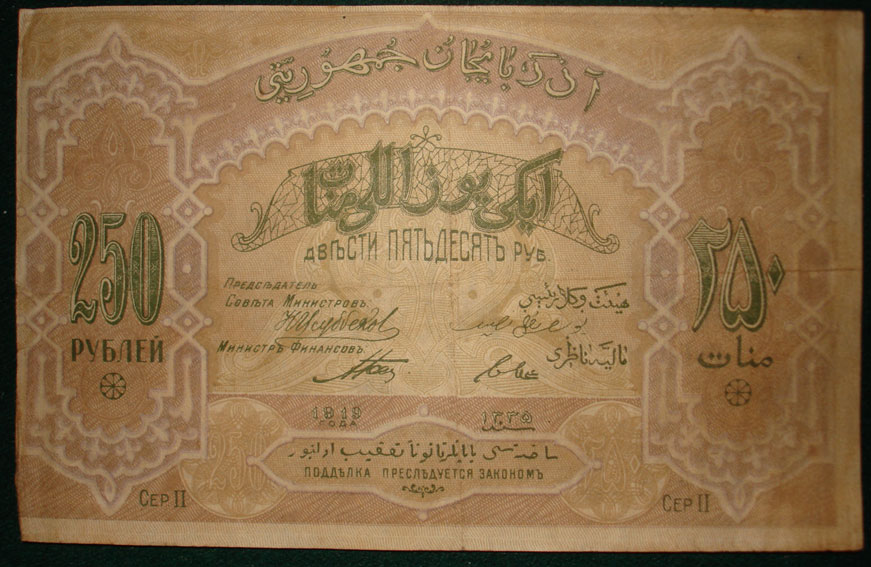 آذربایجان جمهوریتی
ایکی یوز اللی منات
ДВѢСТИ ПЯТЬДЕСЯТЪ РУБ.
250
РУБЛЕЙ
۲۵۰
منات
Предсѣдатель
Совѣта Министровъ.
هیئت وکلا رئیسی
Министръ Финансовъ.
مالیه ناظری
1919
ГОДА
۱۳۳۵
سنه
ساخته‌سی یاپانلر قانوناً تعقیب اولنور
ПОДДѢЛКА ПРЕСЛѢДУЕТСЯ ЗАКОНОМЪ
Сер II
Сер II